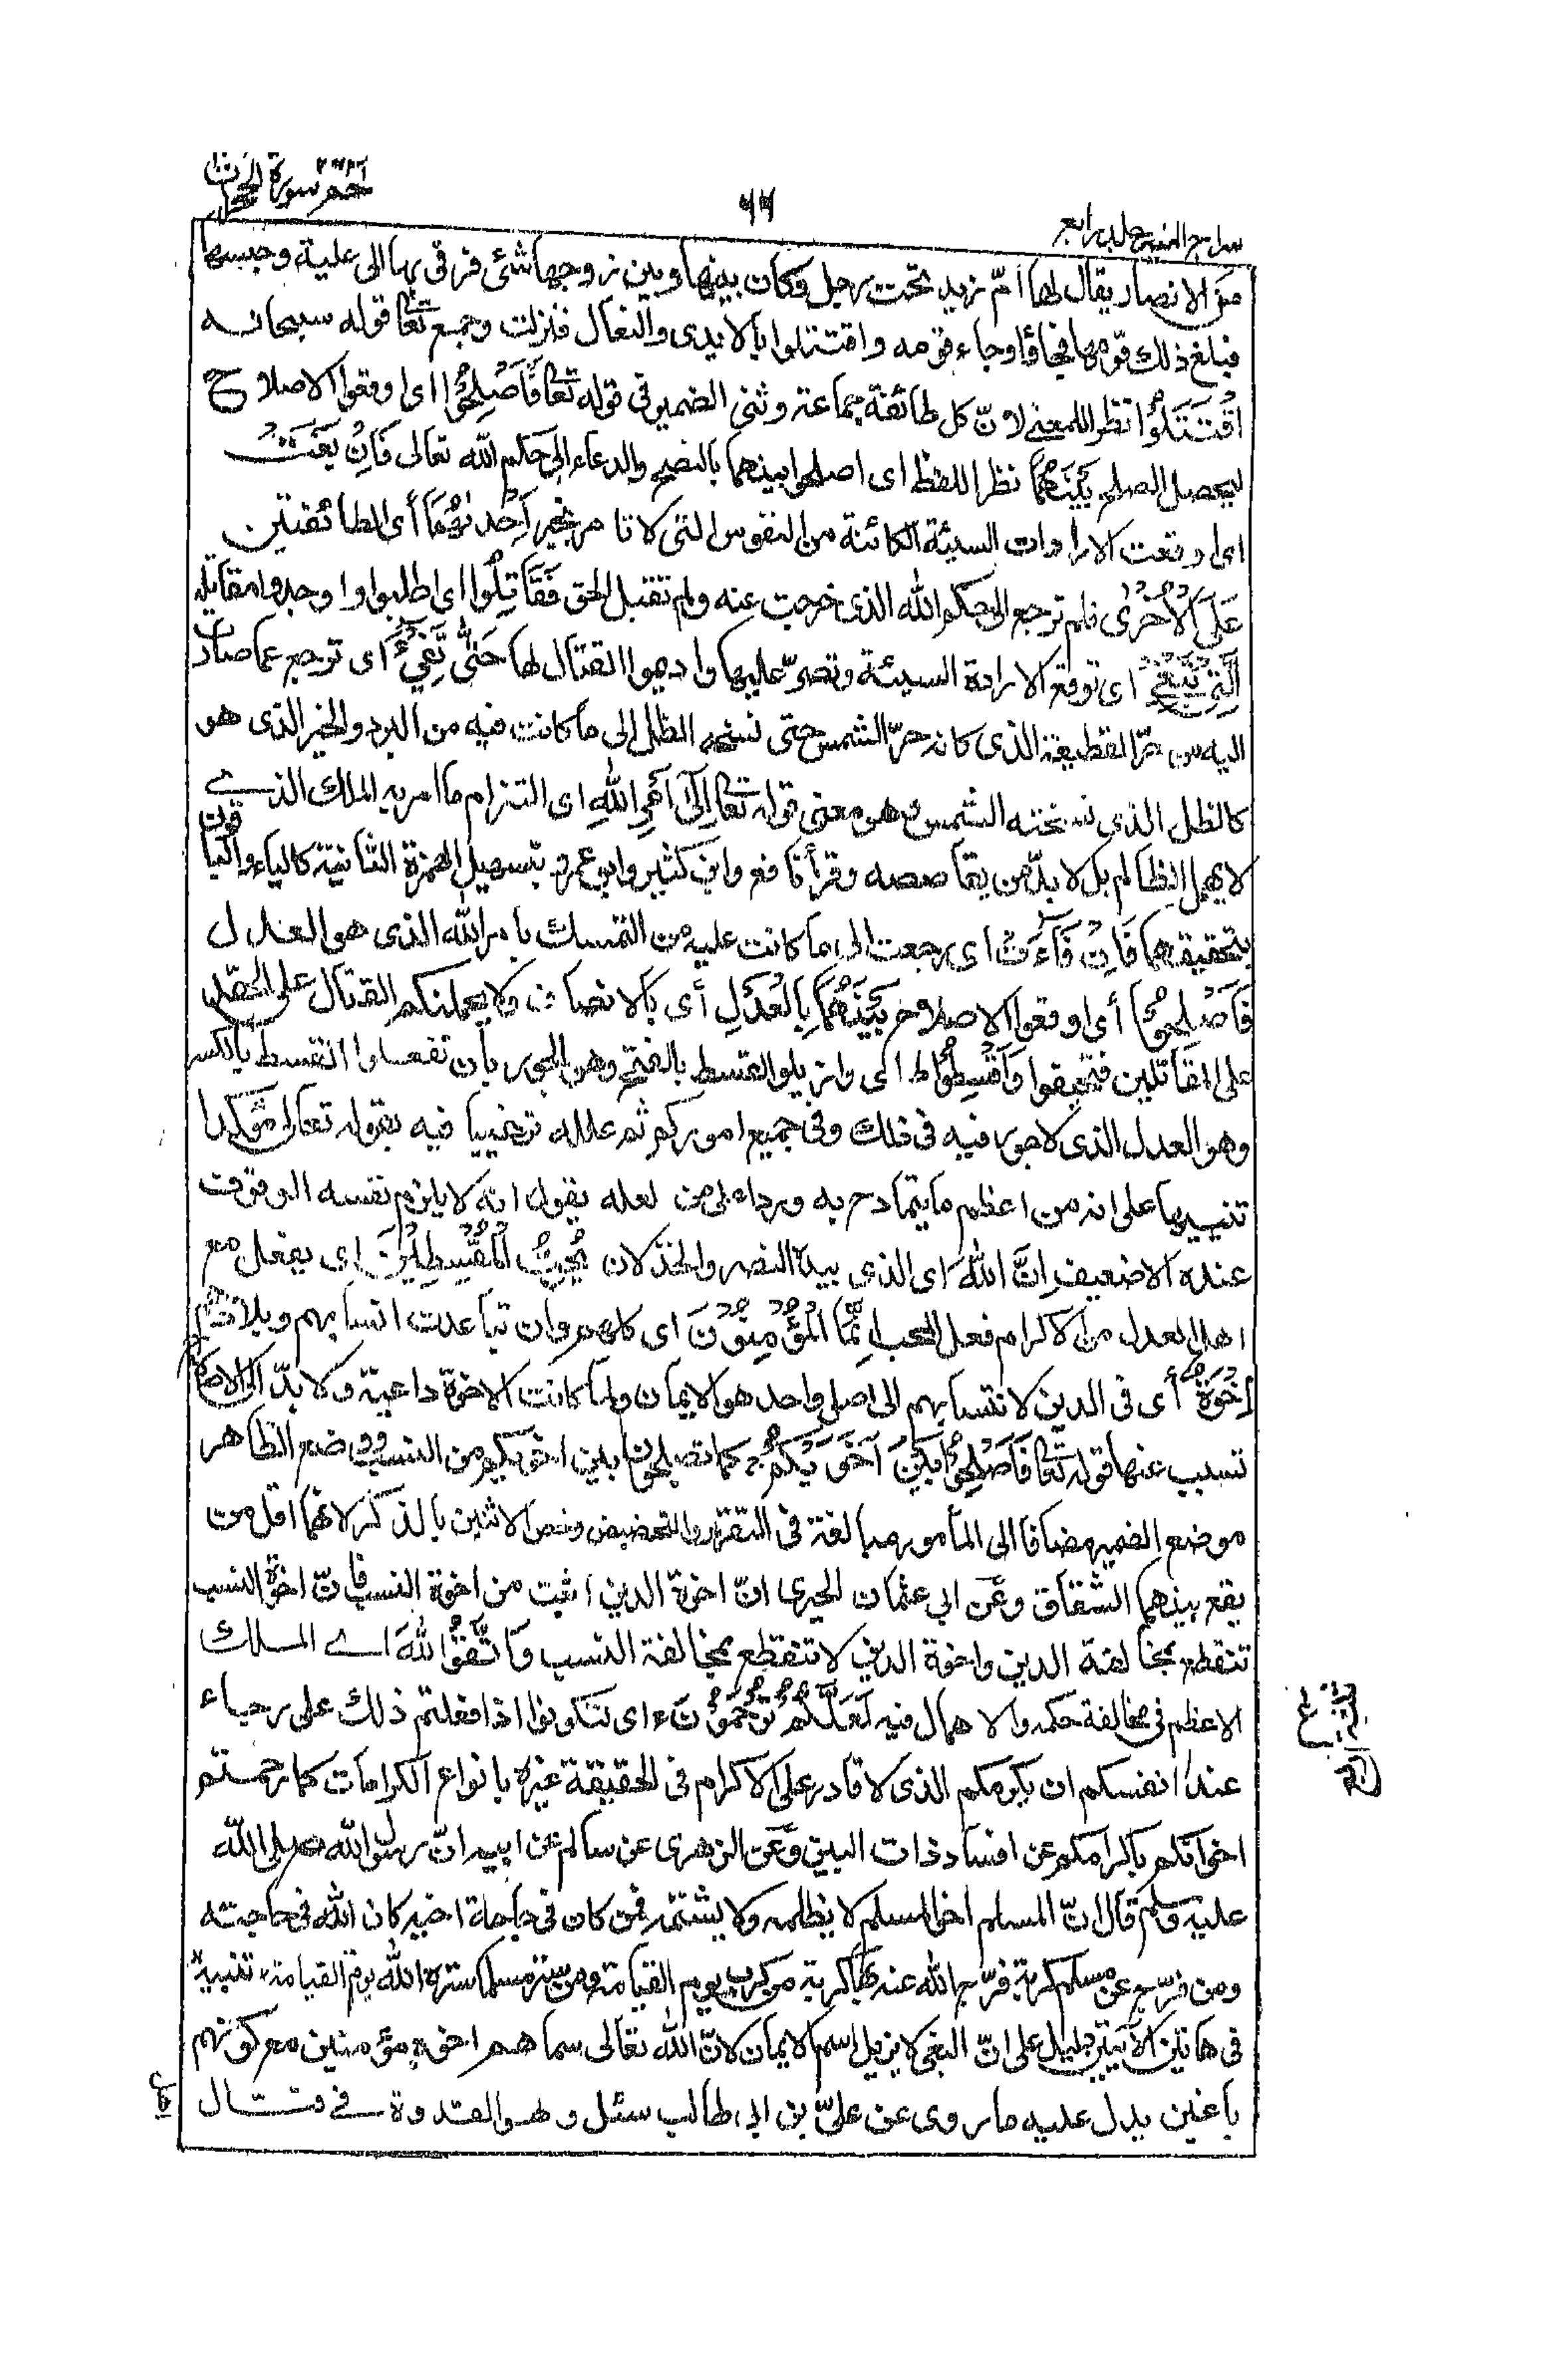 حٰمٓ سورة الحجرات
٦٦
سراج المنير جلد رابع
من الانصار يقال لها امّ زيد تحت رجل وكان بينها وبين زوجها شئ فرقى بها الى علية وحبسها
فبلغ ذلك قومها فجاؤا وجاء قومه واقتتلوا بالايدى والنعال فنزلت وجمع تعالى قوله سبحانه
اقْتَتَلُوْا نظرا للمعنى لانّ كل طائفة جماعة وثنى الضمير فى قوله تعالى فَاَصْلِحُوْا اى اوقعوا الاصلاح
ليحصل الصلح بَيْنَهُمَا نظرا للفظ اى اصلحوا بينهما بالنصح والدعاء الى حكم الله تعالى فَاِنْ بَغَتْ
اى اوقعت الارادات السيئة الكائنة من النفوس التى لا تامر بخير اِحْدٰىهُمَا أى الطائفتين
عَلَى الْاُخْرٰى فلم ترجع الى حكم الله الذى خرجت عنه ولم تقبل الحق فَقَاتِلُوا اى اطلبوا واوجدوا مقاتلة
الَّتِىْ تَبْغِىْ اى توقع الارادة السيئة وتصرّ عليها واديموا القتال لها حَتّٰى تَفِىْٓءَ اى ترجع عما صارت
اليه من حرّ القطيعة الذى كانه حرّ الشمس حتى نسخه الظل الى ما كانت فيه من البرد والخير الذى هو
كالظل الذى نسخته الشمس وهو معنى قوله تعالى اِلٰٓى اَمْرِ اللهِ اى التزام ما امر به الملك الذى
لا يهمل الظالم بل لا بدّ من يقاصصه وقرأ نافع وابن كثير وابو عمرو بتسهيل الهمزة الثانية كالياء والباقون
بتحقيقهما فَاِنْ فَآءَتْ اى رجعت الى ما كانت عليه من التمسك بامر الله الذى هو العدل
فَاَصْلِحُوْا أى اوقعوا الاصلاح بَيْنَهُمَا بِالْعَدْلِ أى بالانصاف ولا يحملنكم القتال على الحقد
على المقاتلين فتحيفوا وَاَقْسِطُوْا ط اى وازيلوا القسط بالفتح وهو الجور بأن تفعلوا القسط بالكسر
وهو العدل الذى لا جور فيه فى ذلك وفى جميع اموركم ثم علله ترغيبا فيه بقوله تعالى مؤكدا
تنبيها على انه من اعظم ما يتمادح به وردا على من لعله يقول انه لا يلزم نفسه الوقوف
عنده الا ضعيف اِنَّ اللهَ اى الذى بيده النصر والخذلان يُحِبُّ الْمُقْسِطِيْنَ اى يفعل مع
اهل العدل من الاكرام فعل المحب اِنَّمَا الْمُؤْمِنُوْنَ اى كلهم وان تباعدت انسابهم وبلادهم
اِخْوَةٌ أى فى الدين لانتسابهم الى اصل واحد هو الايمان ولما كانت الاخوة داعية ولا بدّ الى الاصلاح
تسبب عنها قوله تعالى فَاَصْلِحُوْا بَيْنَ اَخَوَيْكُمْ كما تصلحون بين اخويكم من النسب ووضع الظاهر
موضع الضمير مضافا الى المأمور مبالغة فى التقرير والتحضيض وخص الاثنين بالذكر لانهما اقل من
يقع بينهما الشقاق وعن ابى عثمان الحيرى انّ اخوة الدين اثبت من اخوة النسب فانّ اخوة النسب
تنقطع بمخالفة الدين واخوة الدين لا تنقطع بمخالفة النسب وَاتَّقُوا اللهَ اى الملك
الاعظم فى مخالفة حكمه والاهمال فيه لَعَلَّكُمْ تُرْحَمُوْنَ اى لتكونوا اذا فعلتم ذلك على رجاء
عند انفسكم ان يكرمكم الذى لا قادر على الاكرام فى الحقيقة غيره بانواع الكرامات كما رحمتم
اخوانكم باكرامكم عن افساد ذات البين وعن الزهرى عن سالم عن ابيه انّ رسول الله صلى الله
عليه وسلم قال انّ المسلم اخو المسلم لا يظلمه ولا يشتمه فمن كان فى حاجة اخيه كان الله فى حاجته
ومن فرّج عن مسلم كربة فرّج الله عنه بها كربة من كرب يوم القيامة ومن ستر مسلما ستره الله يوم القيامة، تنبيه
فى هاتين الآيتين دليل على انّ البغى لا يزيل اسم الايمان لانّ الله تعالى سماهم اخوة مؤمنين مع كونهم
باغين يدل عليه ما روى عن علىّ بن ابى طالب سئل وهو القدوة فى قتال